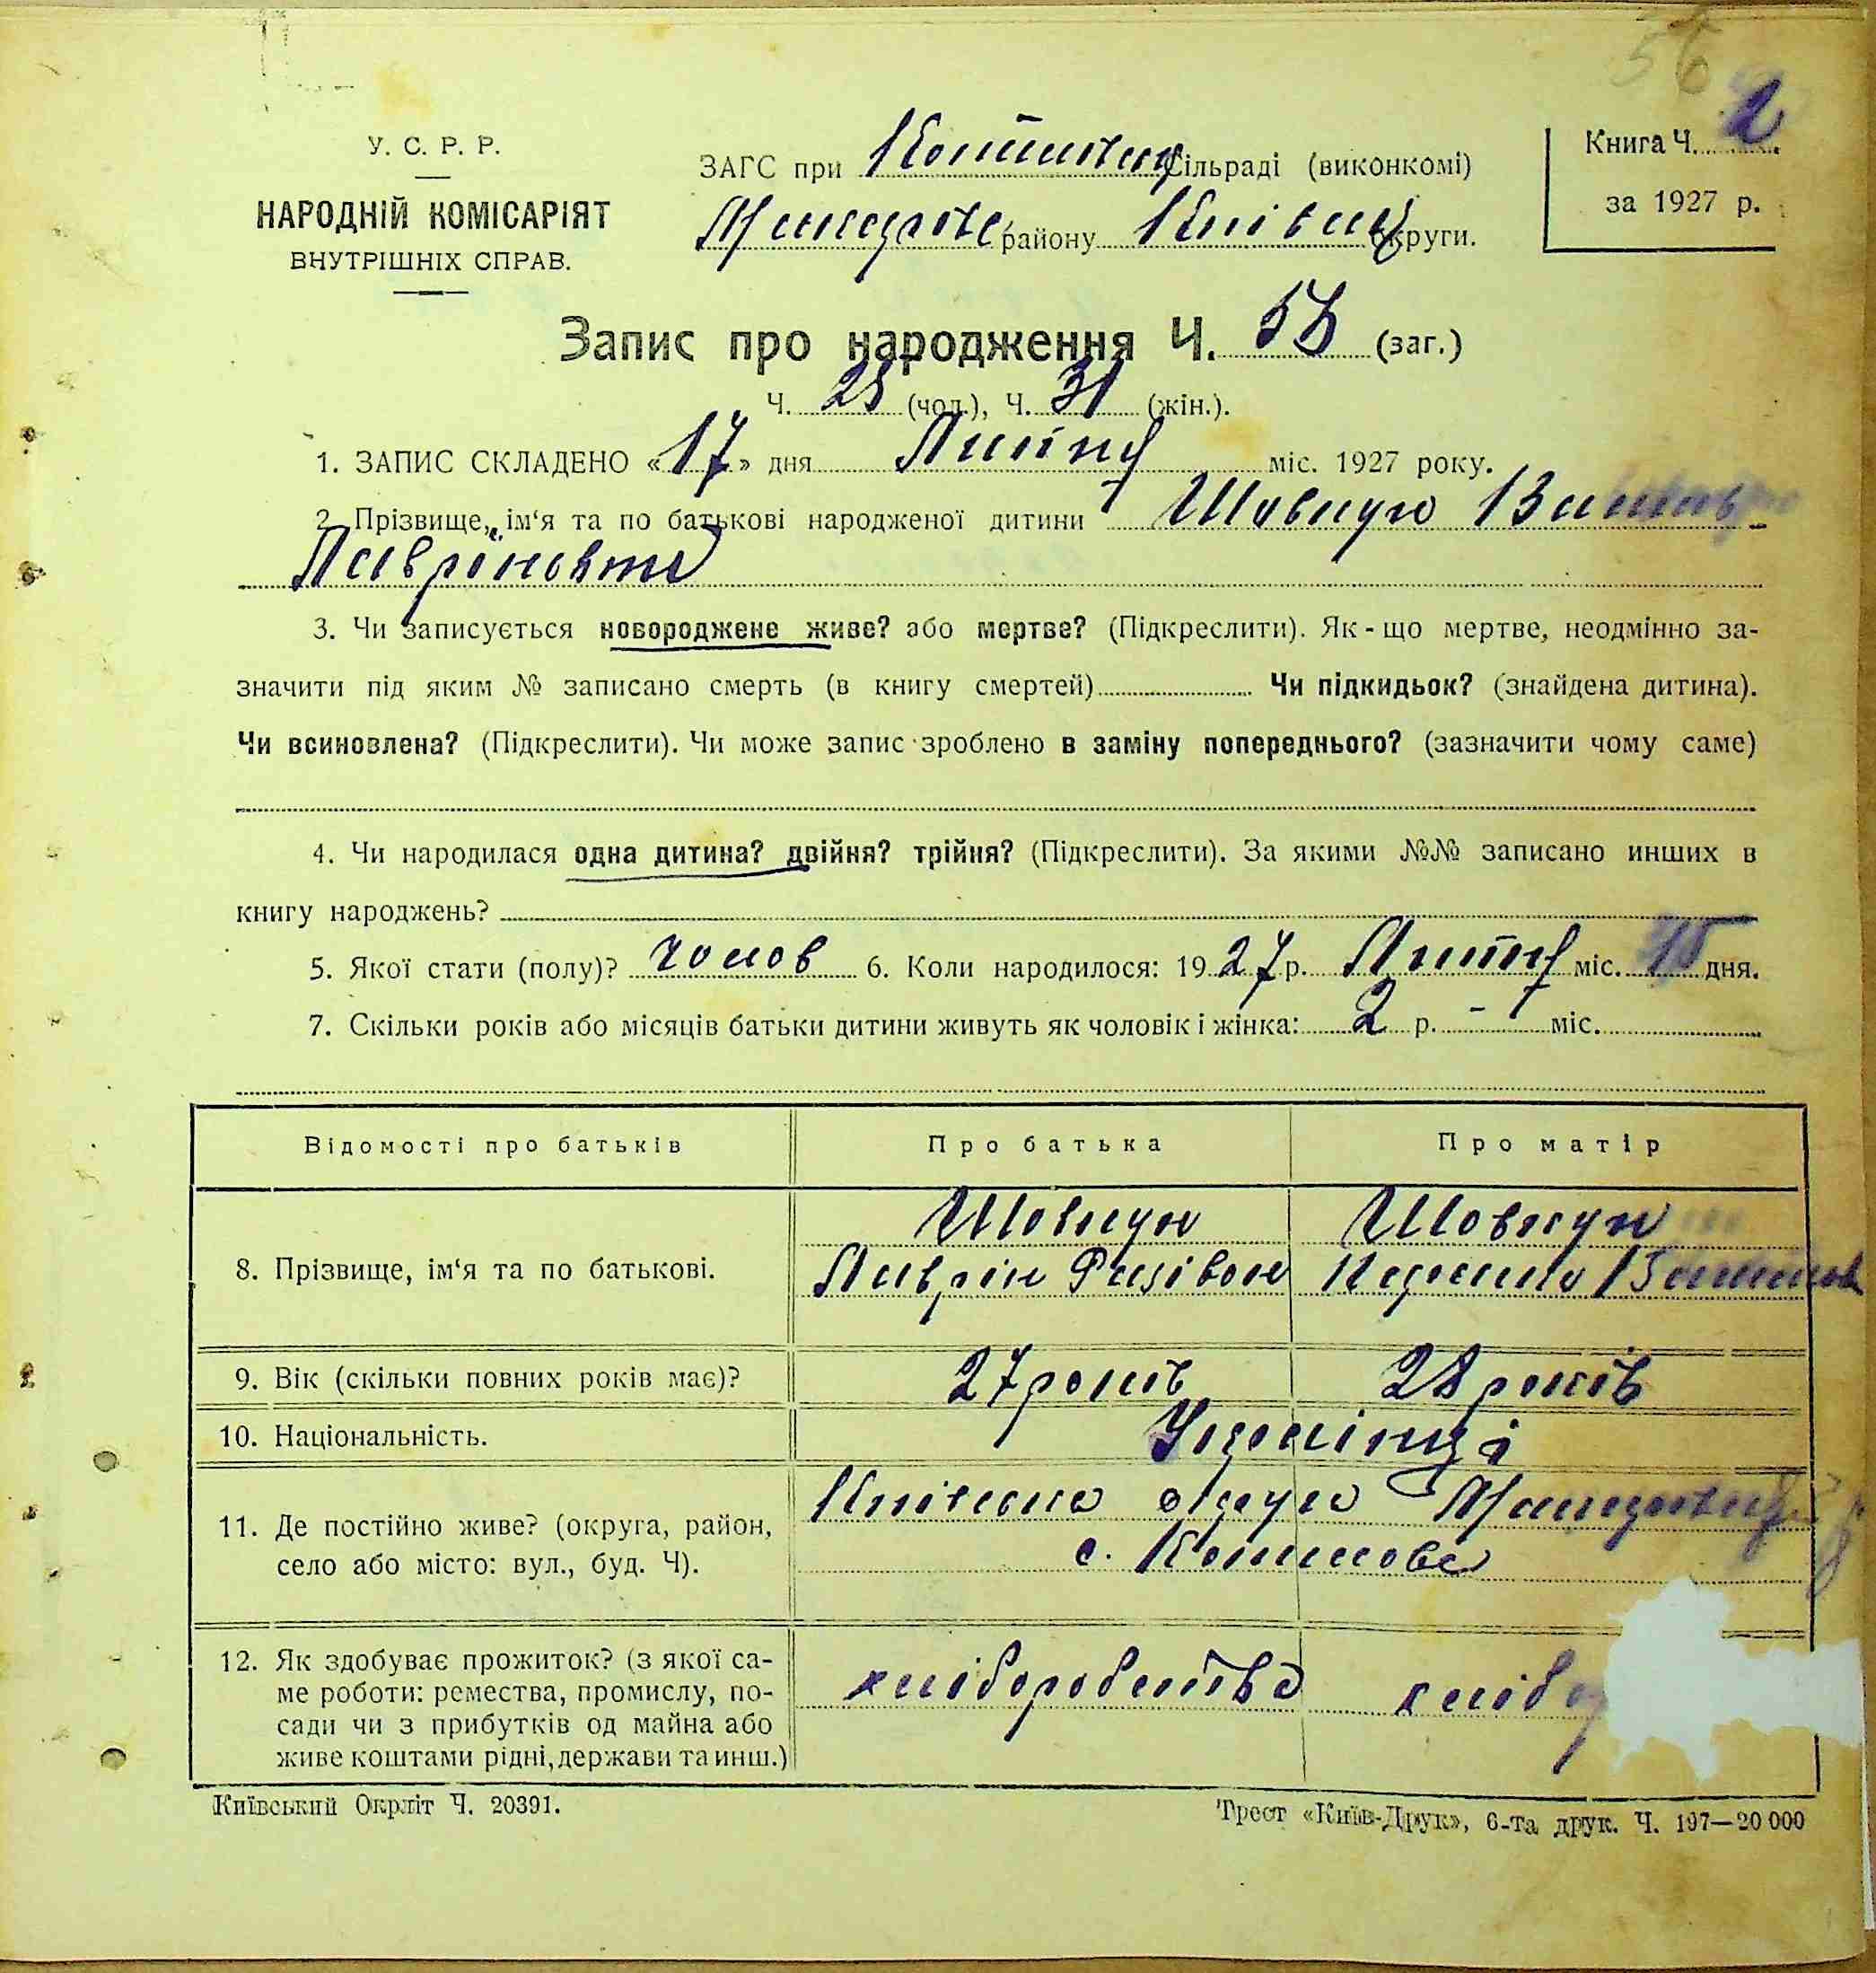 56
У. С. Р. Р.
НАРОДНІЙ КОМІСАРІЯТ
ВНУТРІШНІХ СПРАВ.
ЗАГС при сільраді (виконкомі)
району округи.
Книга Ч. 2
за 1927 р.
Запис про народження Ч. 58 (заг.)
Ч. 28 (чол.), Ч. 31 (жін.).
1. ЗАПИС СКЛАДЕНО «17» дня міс. 1927 року.
2. Прізвище, ім‘я та по батькові народженої дитини Шовкун
3. Чи записується новороджене живе? або мертве? (Підкреслити). Як-що мертве, неодмінно за-
значити під яким № записано смерть (в книгу смертей) Чи підкидьок? (знайдена дитина).
Чи всиновлена? (Підкреслити). Чи може запис зроблено в заміну попереднього? (зазначити чому саме)
4. Чи народилася одна дитина? двійня? трійня? (Підкреслити). За якими №№ записано инших в
книгу народжень?
5. Якої стати (полу)? чолов 6. Коли народилося: 1927 р. міс. 15 дня.
7. Скільки років або місяців батьки дитини живуть як чоловік і жінка: 2 р. - міс.
Відомості про батьків Про батька Про матір
8. Прізвище, ім‘я та по батькові. Шовкун Шовкун
Лаврін
9. Вік (скільки повних років має)? 27 років 28 років
10. Національність. Українці
11. Де постійно живе? (округа, район, село або місто: вул., буд. Ч). Київська округа
с.
12. Як здобуває прожиток? (з якої са-
ме роботи: ремества, промислу, по-
сади чи з прибутків од майна або
живе коштами рідні, держави та инш.)
хліборобство хлібор
Київський Окрліт Ч. 20391.
Трест «Київ-Друк», 6-та друк. Ч. 197—20 000